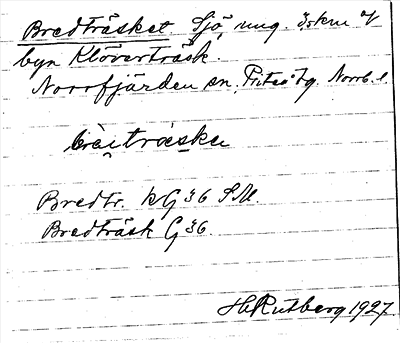 Bredträsket. Sjö, ung. östra af
byn Klöverträsk.
Norrfjärden sn, Piteå tg. Norrb. l.
Bredtr. kG 36 SM.
Bredträsk G 36.
H. Rutberg 1927